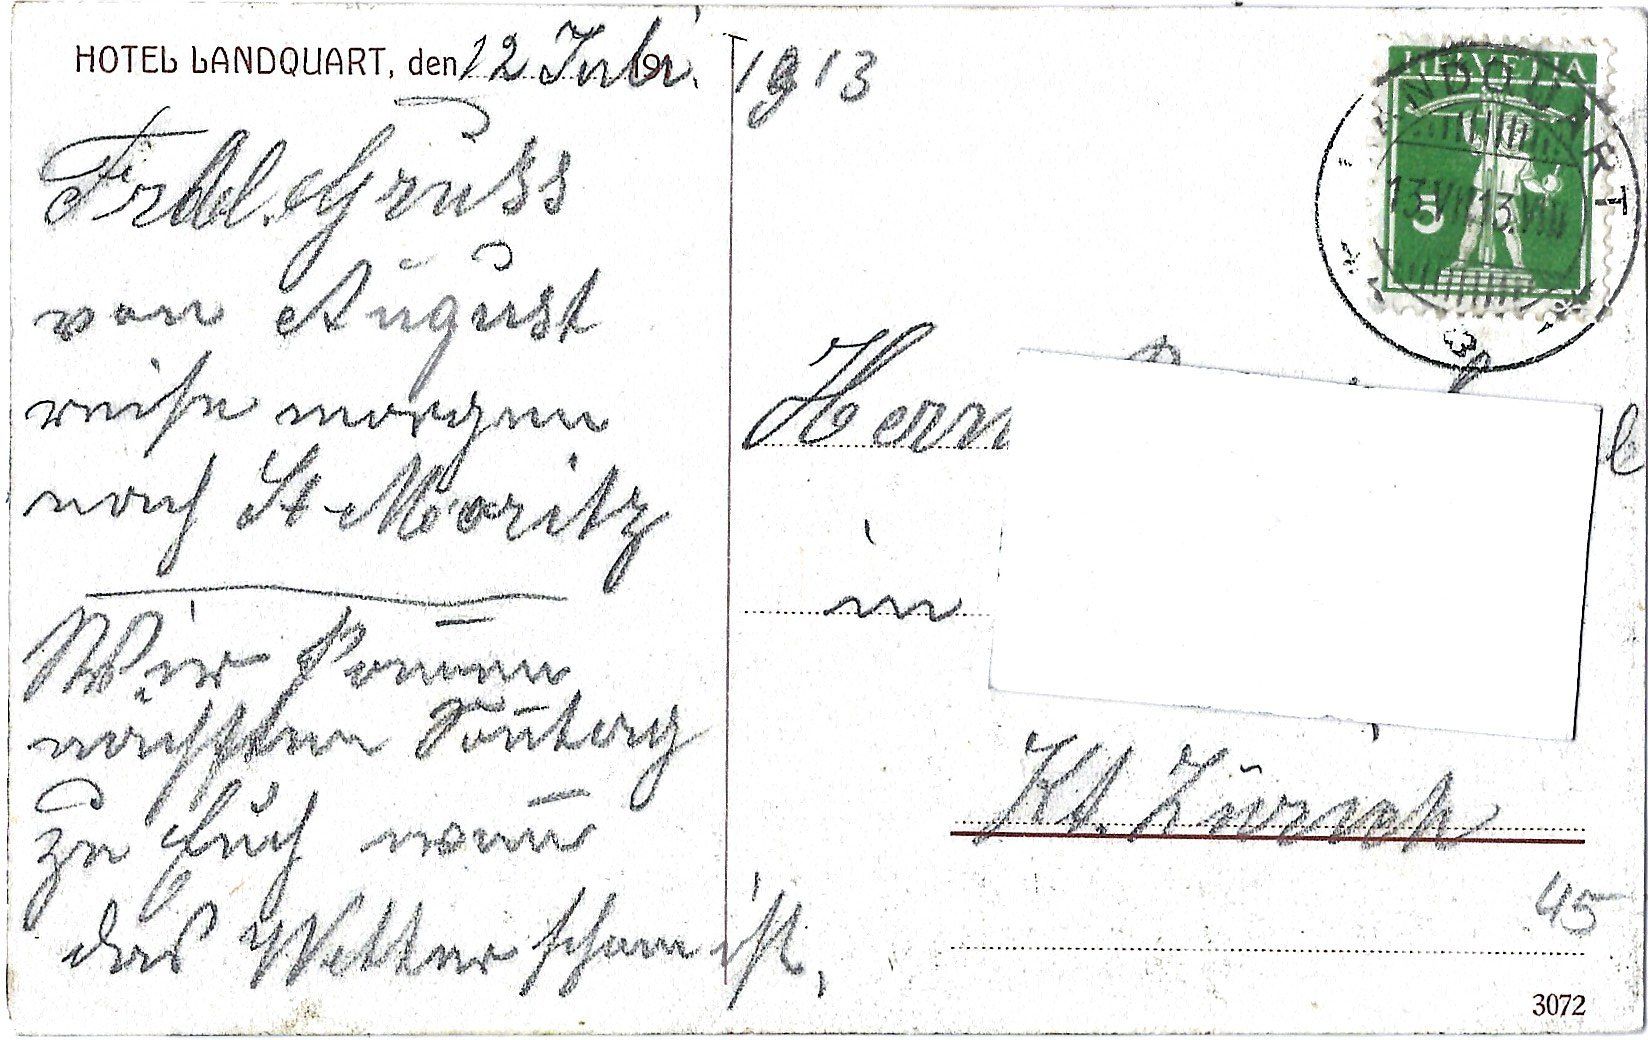 HOTEL LANDQUART, den 12 Juli 191 1913
Frdl. Gruss
von August
reise morgen
nach St. Moritz
Wir komen̅
nächsten Son̅tag
zu Euch wen̅
das Wetter schön ist.
HELVETIA
5
LANDQUART
13.VII.13.VIII
Herrn
in
Kt. Zürich
45
3072